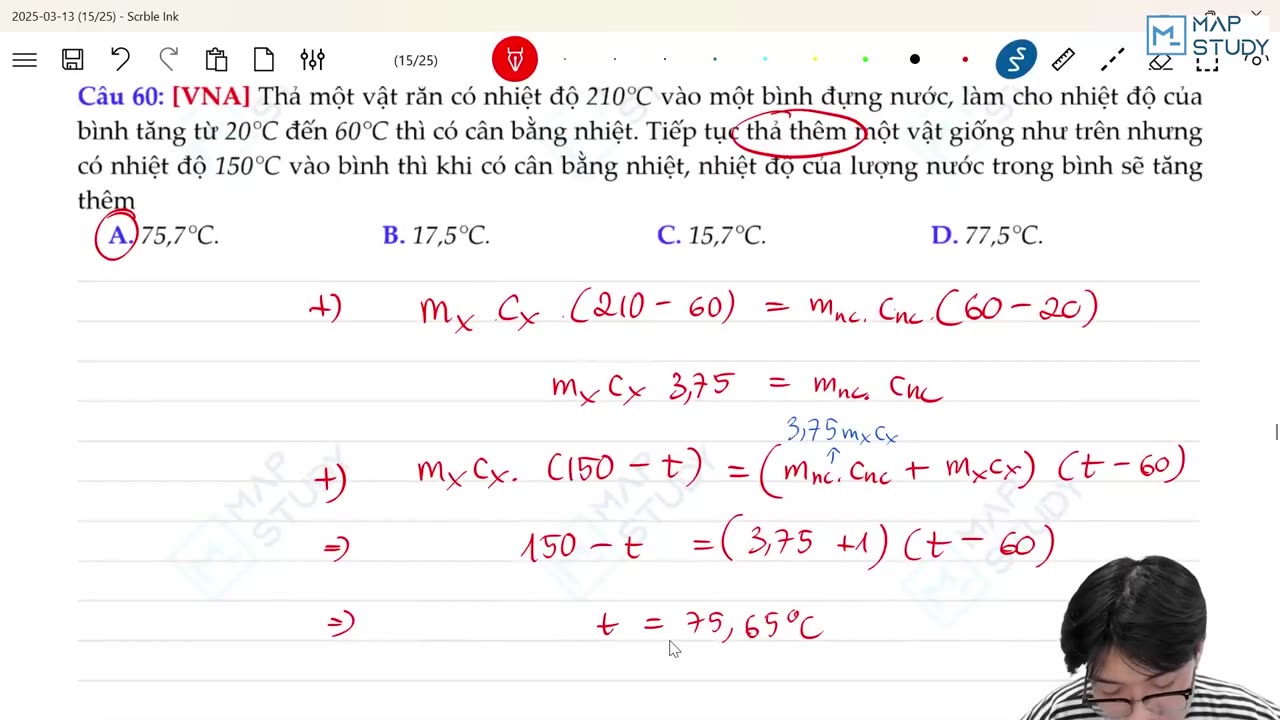 2025-03-13 (15/25) - Scrble Ink
MAP
STUDY
(15/25)
Câu 60: [VNA] Thả một vật rắn có nhiệt độ 210°C vào một bình đựng nước, làm cho nhiệt độ của
bình tăng từ 20°C đến 60°C thì có cân bằng nhiệt. Tiếp tục thả thêm một vật giống như trên nhưng
có nhiệt độ 150°C vào bình thì khi có cân bằng nhiệt, nhiệt độ của lượng nước trong bình sẽ tăng
thêm
A. 75,7°C. B. 17,5°C. C. 15,7°C. D. 77,5°C.
+) mx cx .(210 - 60) = mnc. cnc.(60 - 20)
mx cx 3,75 = mnc. cnc
3,75 mx cx
↑
+) mx cx. (150 - t) = (mnc. cnc + mx cx) (t - 60)
=> 150 - t = (3,75 + 1) (t - 60)
=> t = 75,65°C
MAP STUDY
MAP STUDY
MAP STUDY